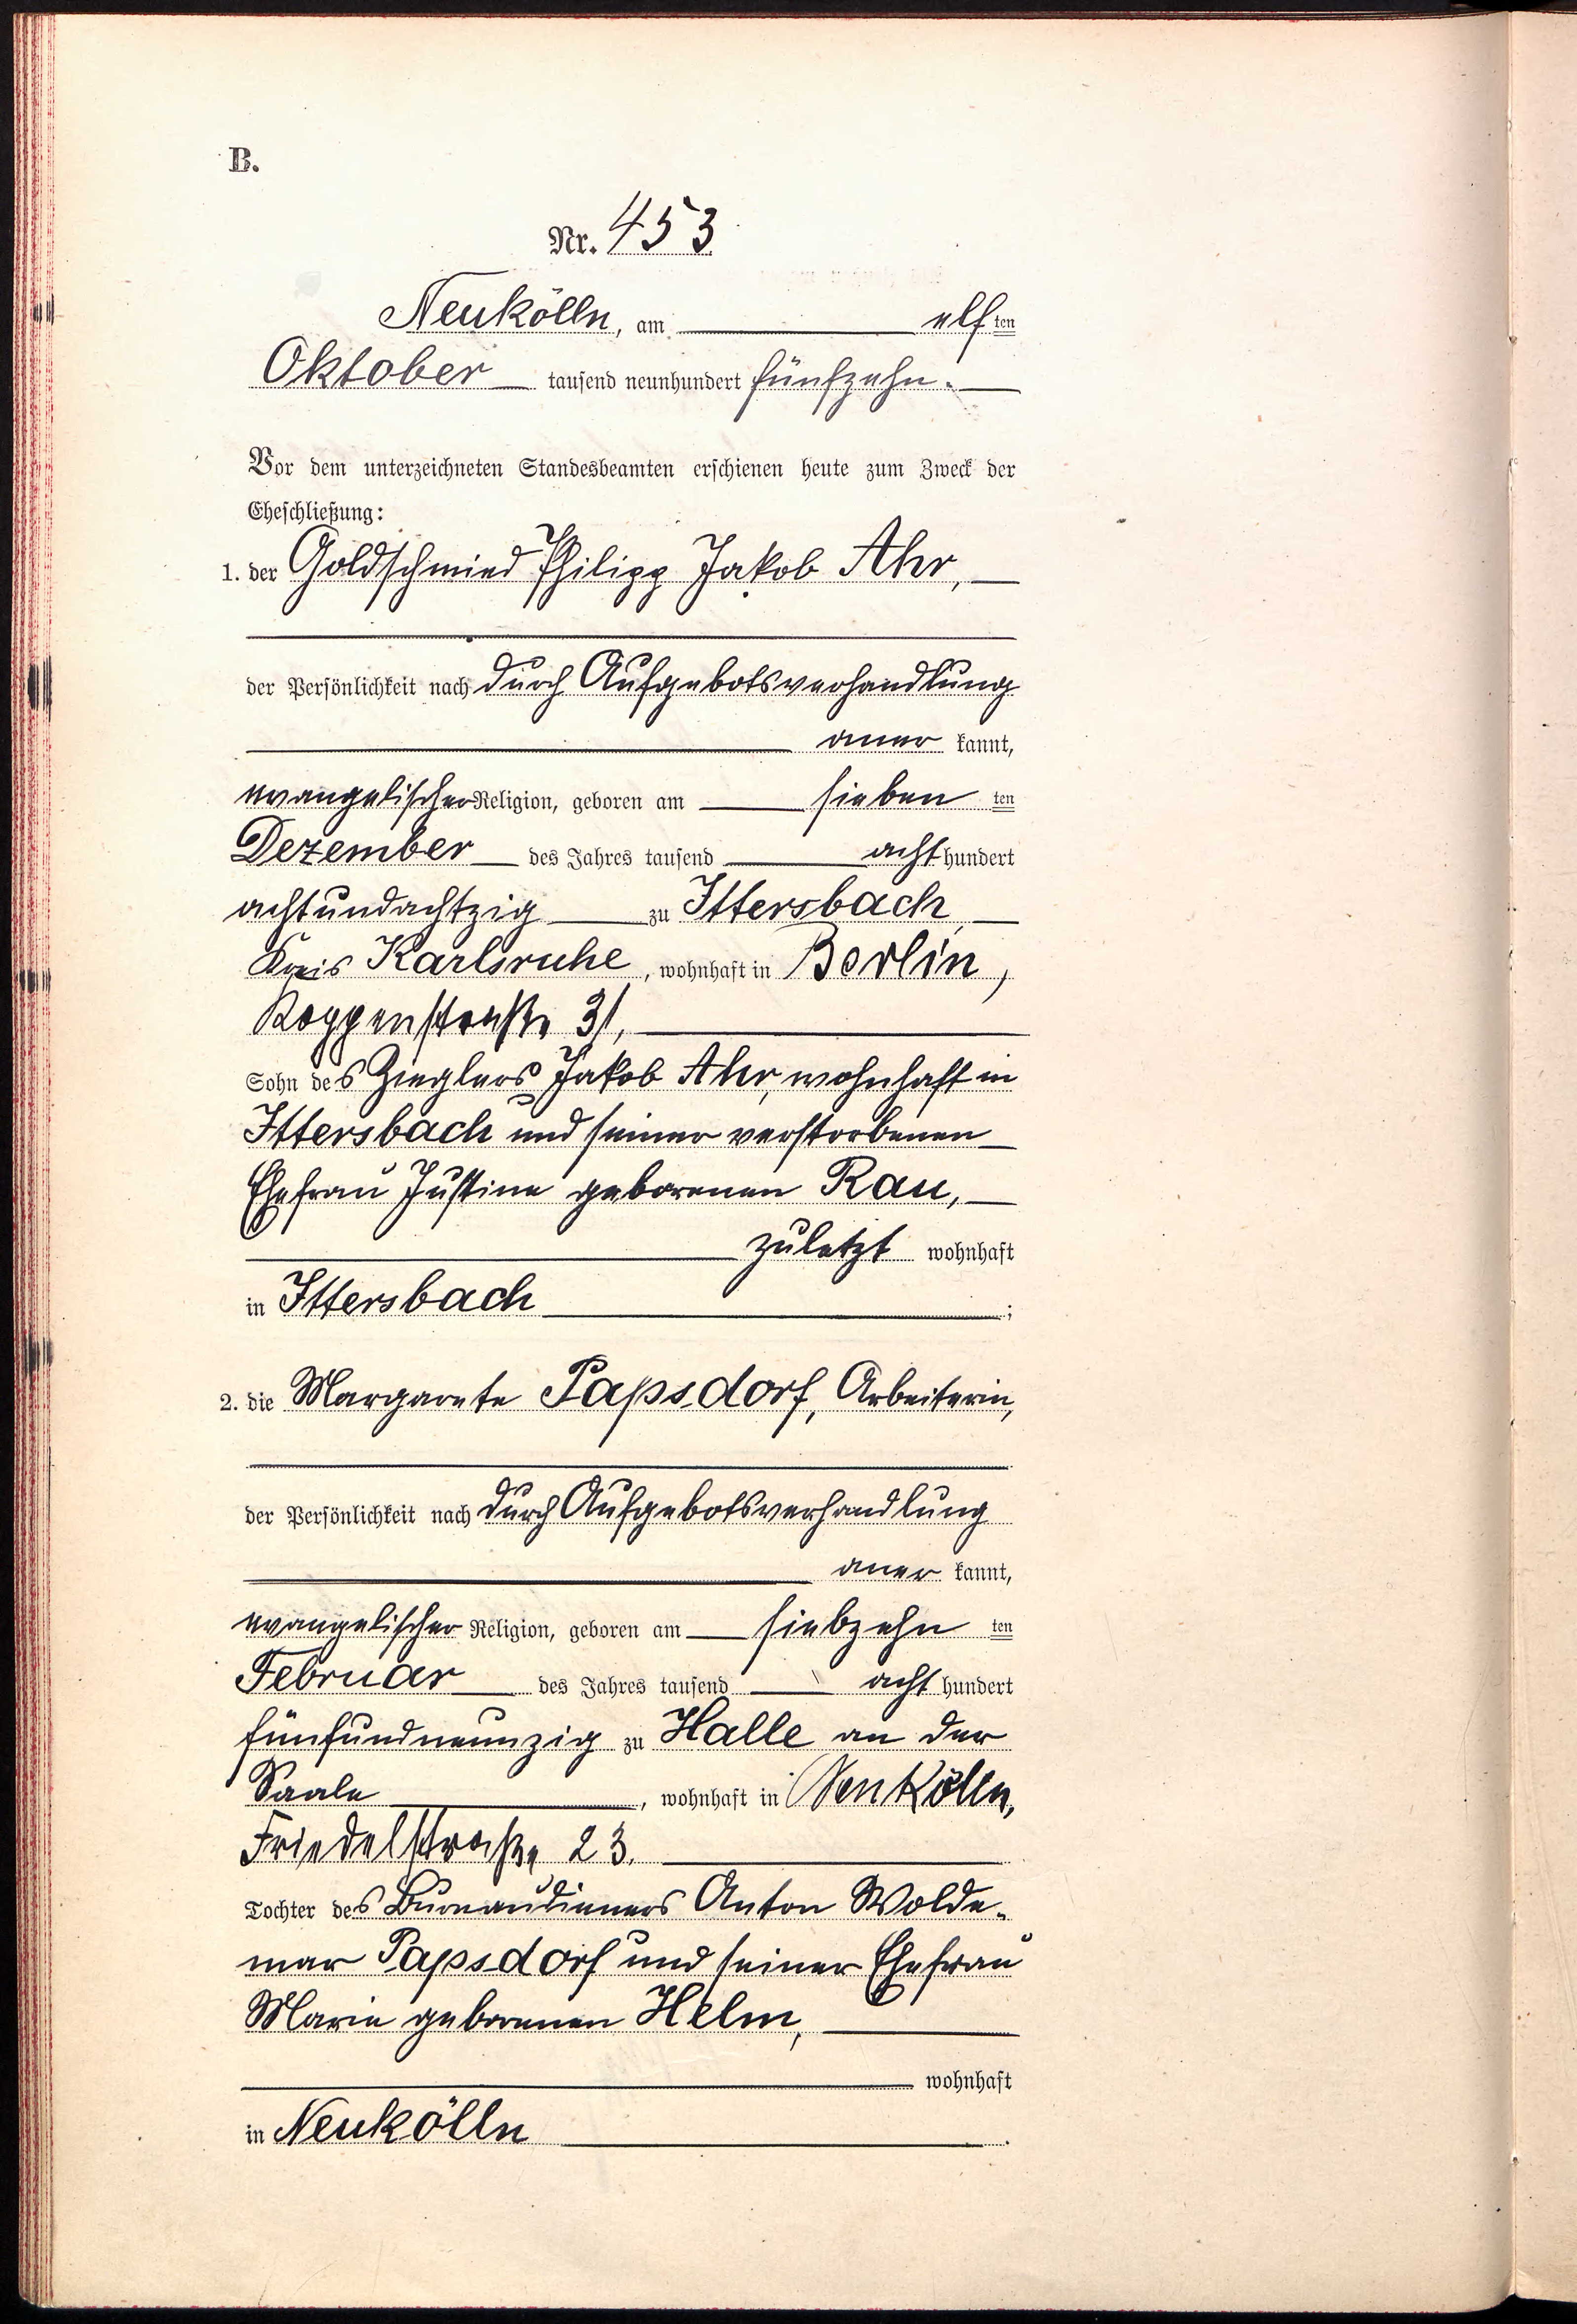 B.
Nr. 453
Neukölln, am elften
Oktober tausend neunhundert fünfzehn.
Vor dem unterzeichneten Standesbeamten erschienen heute zum Zweck der
Eheschließung:
1. der Goldschmied Philipp Jakob Ahr,
der Persönlichkeit nach durch Aufgebotsverhandlung
aner kannt,
evangelischer Religion, geboren am siebenten
Dezember des Jahres tausend achthundert
achtundachtzig zu Ittersbach,
Kreis Karlsruhe, wohnhaft in Berlin,
Koppenstraße 31,
Sohn des Zieglers Jakob Ahr, wohnhaft in
Ittersbach und seiner verstorbenen
Ehefrau Justine geborenen Rau,
zuletzt wohnhaft
in Ittersbach;
2. die Margarete Papsdorf, Arbeiterin,
der Persönlichkeit nach durch Aufgebotsverhandlung
aner kannt,
evangelischer Religion, geboren am siebzehnten
Februar des Jahres tausend acht hundert
fünfundneunzig zu Halle an der
Saale, wohnhaft in Neukölln,
Friedelstraße 23.
Tochter des Bureaudieners Anton Wolde-
mar Papsdorf und seiner Ehefrau
Marie geborenen Helm,
wohnhaft
in Neukölln.